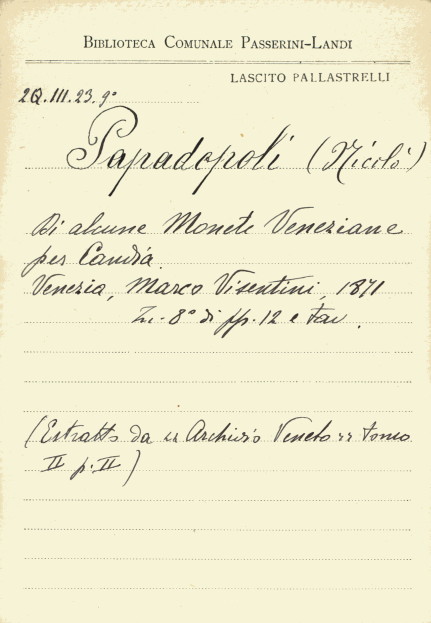 BIBLIOTECA COMUNALE PASSERINI-LANDI
LASCITO PALLASTRELLI
2Q.III.23.9°
Papadopoli (Nicolò)
Di alcune Monete Veneziane
per Candia.
Venezia, Marco Visentini, 1871
In-8° di pp. 12 e tav.
(Estratto da « Archivio Veneto » tomo
II p. II)